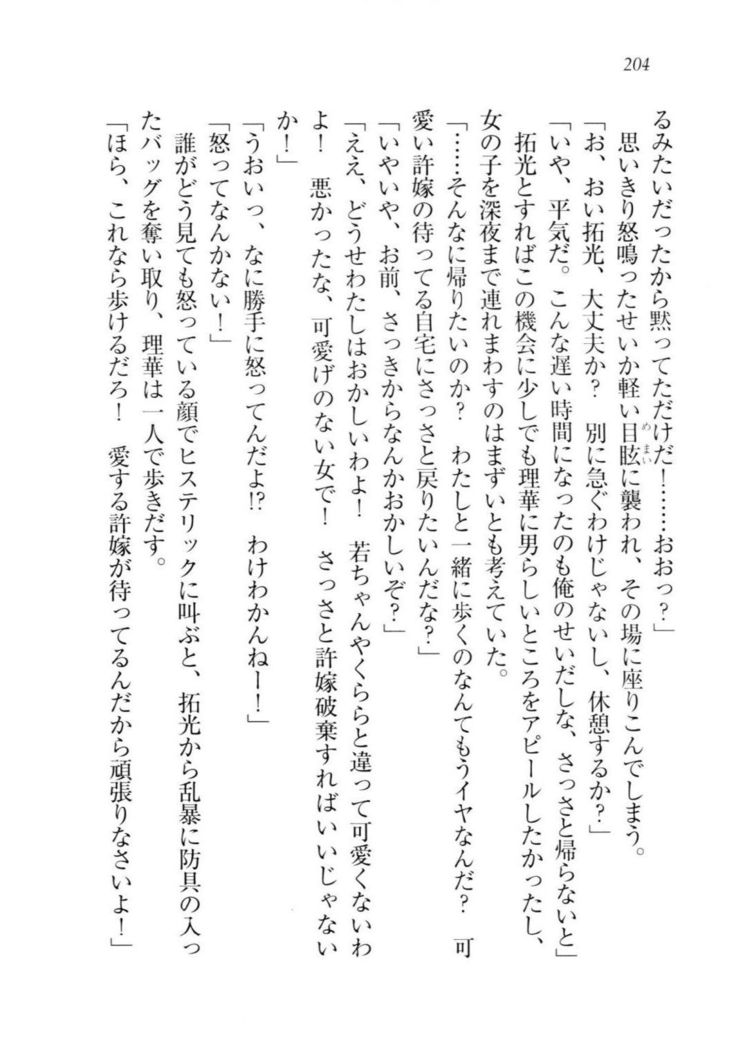 204
るみたいだったから黙ってただけだ！……おおっ？」
思いきり怒鳴ったせいか軽い目眩に襲われ、その場に座りこんでしまう。
「お、おい拓光、大丈夫か？　別に急ぐわけじゃないし、休憩するか？」
「いや、平気だ。こんな遅い時間になったのも俺のせいだしな、さっさと帰らないと」
拓光とすればこの機会に少しでも理華に男らしいところをアピールしたかったし、
女の子を深夜まで連れまわすのはまずいとも考えていた。
「……そんなに帰りたいのか？　わたしと一緒に歩くのなんてもうイヤなんだ？　可
愛い許嫁の待ってる自宅にさっさと戻りたいんだな？」
「いやいや、お前、さっきからなんかおかしいぞ？」
「ええ、どうせわたしはおかしいわよ！　若ちゃんやくららと違って可愛くないわ
よ！　悪かったな、可愛げのない女で！　さっさと許嫁破棄すればいいじゃない
か！」
「うおいっ、なに勝手に怒ってんだよ!?　わけわかんねー！」
「怒ってなんかない！」
誰がどう見ても怒っている顔でヒステリックに叫ぶと、拓光から乱暴に防具の入っ
たバッグを奪い取り、理華は一人で歩きだす。
「ほら、これなら歩けるだろ！　愛する許嫁が待ってるんだから頑張りなさいよ！」